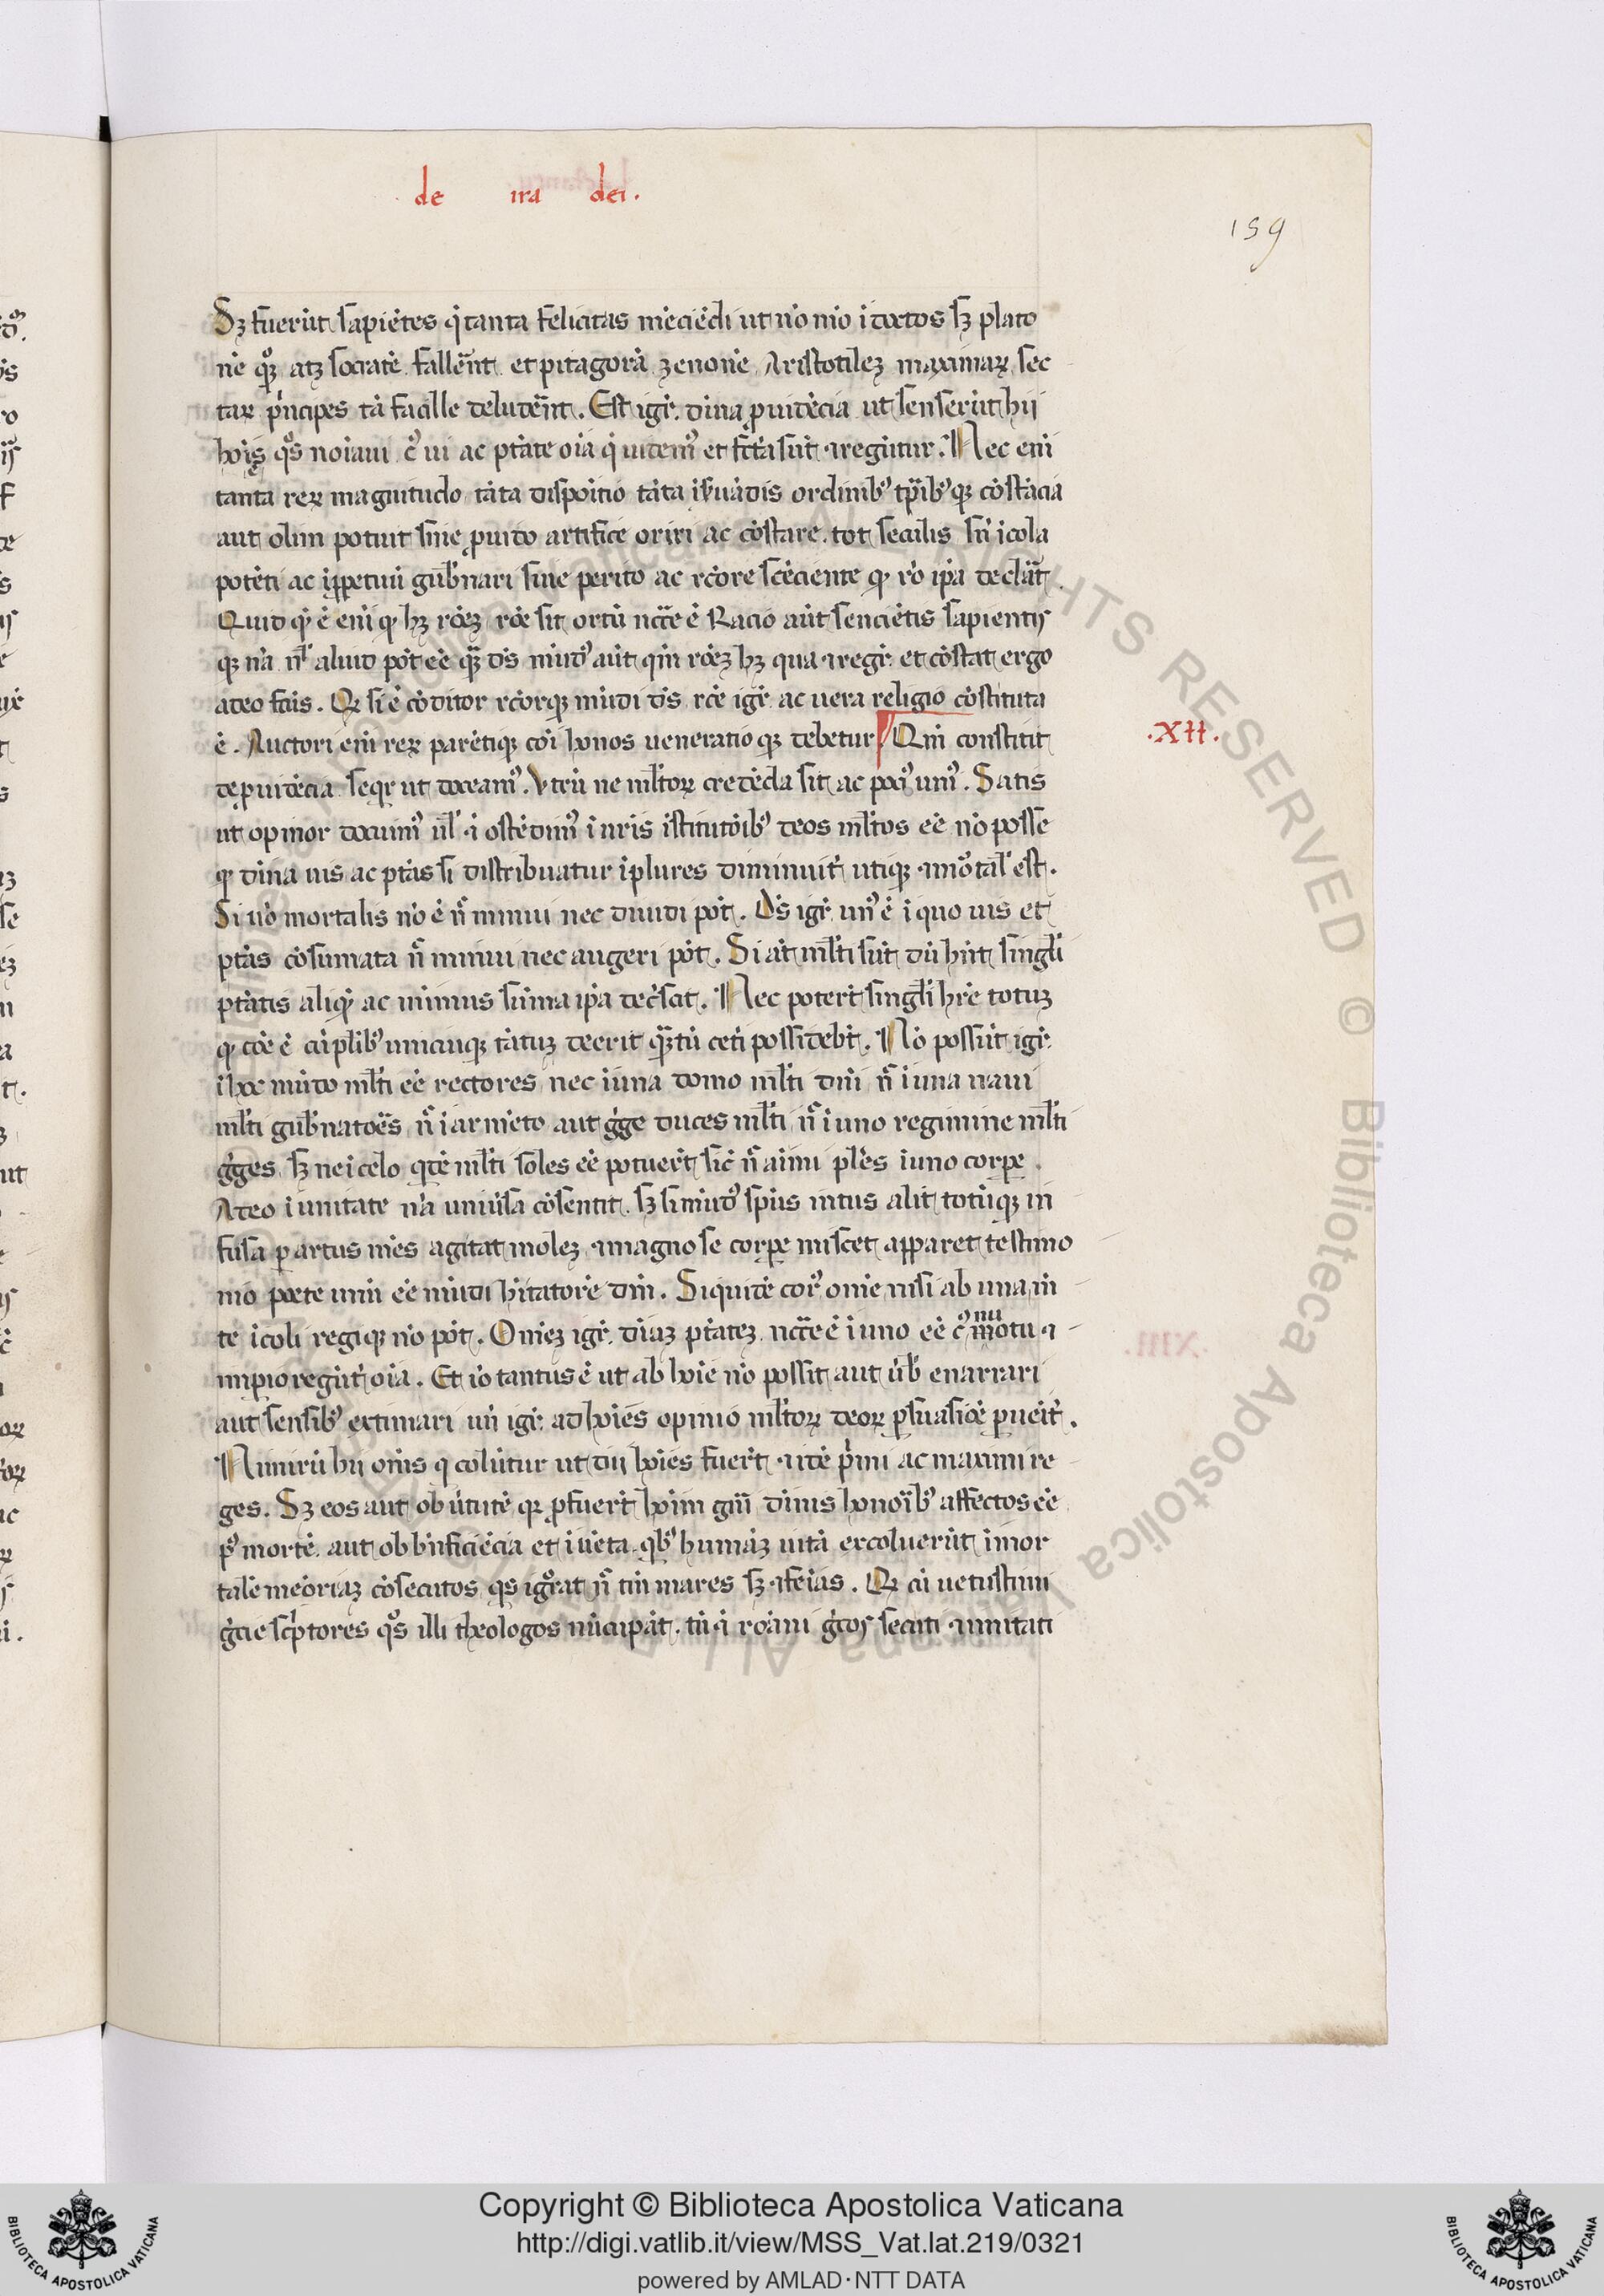 de ira dei.
159
Sꝫ fuerūt sapiētes q̇ tanta felicitas mēciēdi ut nō mō īdoctos sꝫ plato
nē q̊ꝫ atꝫ socratē fallēnt et pitagorā zenonē Aristotilēꝫ maximaꝝ sec
taꝝ ṗncipes tā facille deludēnt. Est igr̄. dīna ꝓuidēcia ut senserūt hij
hoīs q̊s noīaui c̓ ui ac ptāte oīa q̇ uidem᷒ et fctā sūt ⁊ regūtur. Nec enī
tanta reꝝ magnitudo tāta dispoītio tāta ī ẜuādis ordinib᷒ tp̄ib᷒qꝫ cōstācia
aut olim potuit sine ꝓuido artifice oriri ac cōstare tot seculis sn̄ īcola
potēti ac īꝑpetuū gub̄nari sine perito ac rcōre scēciente qꝫ rō ip̄a declāt.
Quid qꝫ ē enī qꝫ hꝫ rōeꝫ rōe sit ortū nccē ē Racio aūt senciētis sapientis
qꝫ nā nl̓ aliud pōt eē qꝫ ds̄ mūd᷒ aūt qm̄ rōeꝫ hꝫ qua ⁊ regr̄. et cōstat ergo
a deo fcūs. Qꝫ si ē cōditor rcōrqꝫ mūdi ds̄ rcē igr̄ ac uera religio cōstituta
ē. Auctori enī reꝝ parētiqꝫ cōi honos ueneratio qꝫ debetur Qm̄ constitit
.XII.
de ꝓuidēcia seqr̄ ut doceam᷒. Vtrū ne ml̄toꝝ credēda sit ac poci᷒ uni᷒. Satis
ut opinor docuim᷒ ul̄ ⁊ ostēdim᷒ ī nris īstitutōib᷒ deos ml̄tos eē nō posse
qꝫ dīna uis ac ptās si distribuatur ī plures diminuit̄ utiqꝫ ⁊ mōtal̓ est.
Si uō mortalis nō ē n̄ minui nec diuidi pōt. Ds̄ igr̄ un᷒ ē ī quo uis et
ptās cōsumata n̄ minui nec augeri pōt. Si āt ml̄ti sūt dū hn̄t singl̄i
ptātis aliqꝫ ac minus sūma ip̄a dec̓scat. Nec poterit singl̄i hr̄e totuꝫ
qꝫ cōe ē cū plīb᷒ unicuiqꝫ tātuꝫ deerit qꝫtū cetī possidebt̄. Nō possūt igr̄.
ī hoc mūdo ml̄ti eē rectores nec ī una domo ml̄ti dn̄i n̄ ī una naui
ml̄ti gub̄natoēs n̄ ī armēto aut g̓ge duces ml̄ti n̄ ī uno regimine ml̄ti
g̓ges sꝫ ne ī celo qdē ml̄ti soles eē potuert̄ sic̄ n̄ aīmi pl̄es ī uno corꝑe.
Adeo ī unitate nā uniūsa cōsentit sꝫ si mūd᷒ sp̄us intus alit totūqꝫ in
fusa ꝑ artus mēs agitat moleꝫ ⁊ magno se corꝑe miscet apparet testimo
nio poete unū eē mūdi hītatorē dm̄. Siquidē cor᷒ om̄e nisi ab una m̄
te ī coli regiqꝫ nō pōt. Om̄eꝫ igr̄ dīaꝫ ptāteꝫ nccē ē ī uno eē c᷒ nu motu ⁊
īmpio regūt̄ oīa. Et iō tantus ē ut ab hoīe nō possit aut ūb̄ enarrari
aut sensib᷒ extimari un̄ igr̄ ad hoīes opinio ml̄toꝝ deoꝝ ꝑsuasiōē ꝑueīt.
Nimirū hij om̄s q colūtur ut dij hoīes fuert̄ ⁊ idē p̓mi ac maximi re
ges. Sꝫ eos aut ob ūtutē qꝫ ꝓfuert̄ hoīm gn̄i dīnis honoīb᷒ affectos eē
p᷒ mortē aut ob bn̄ficiēcia et īuēta qb᷒ humāꝫ uitā excoluerūt īmor
talē meōriaꝫ cōsecutos qs igr̄at n̄ tm̄ mares sꝫ ⁊ feīas. Qꝫ cū uetustimi
g̓cie sc̓ptores q̊s illi theologos nūcupāt. tū ⁊ roāni g̓cos secuti ⁊ imitati